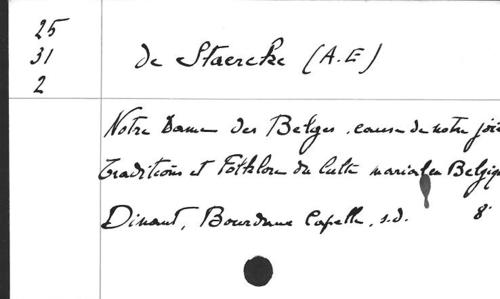 25
31
2
de Staercke (A.E)
Notre Dame des Belges, cause de notre joie
Traditions et Folklore du Culte marial en Belgique
Dinant, Bourdeaux Capelle, s.d. 8°